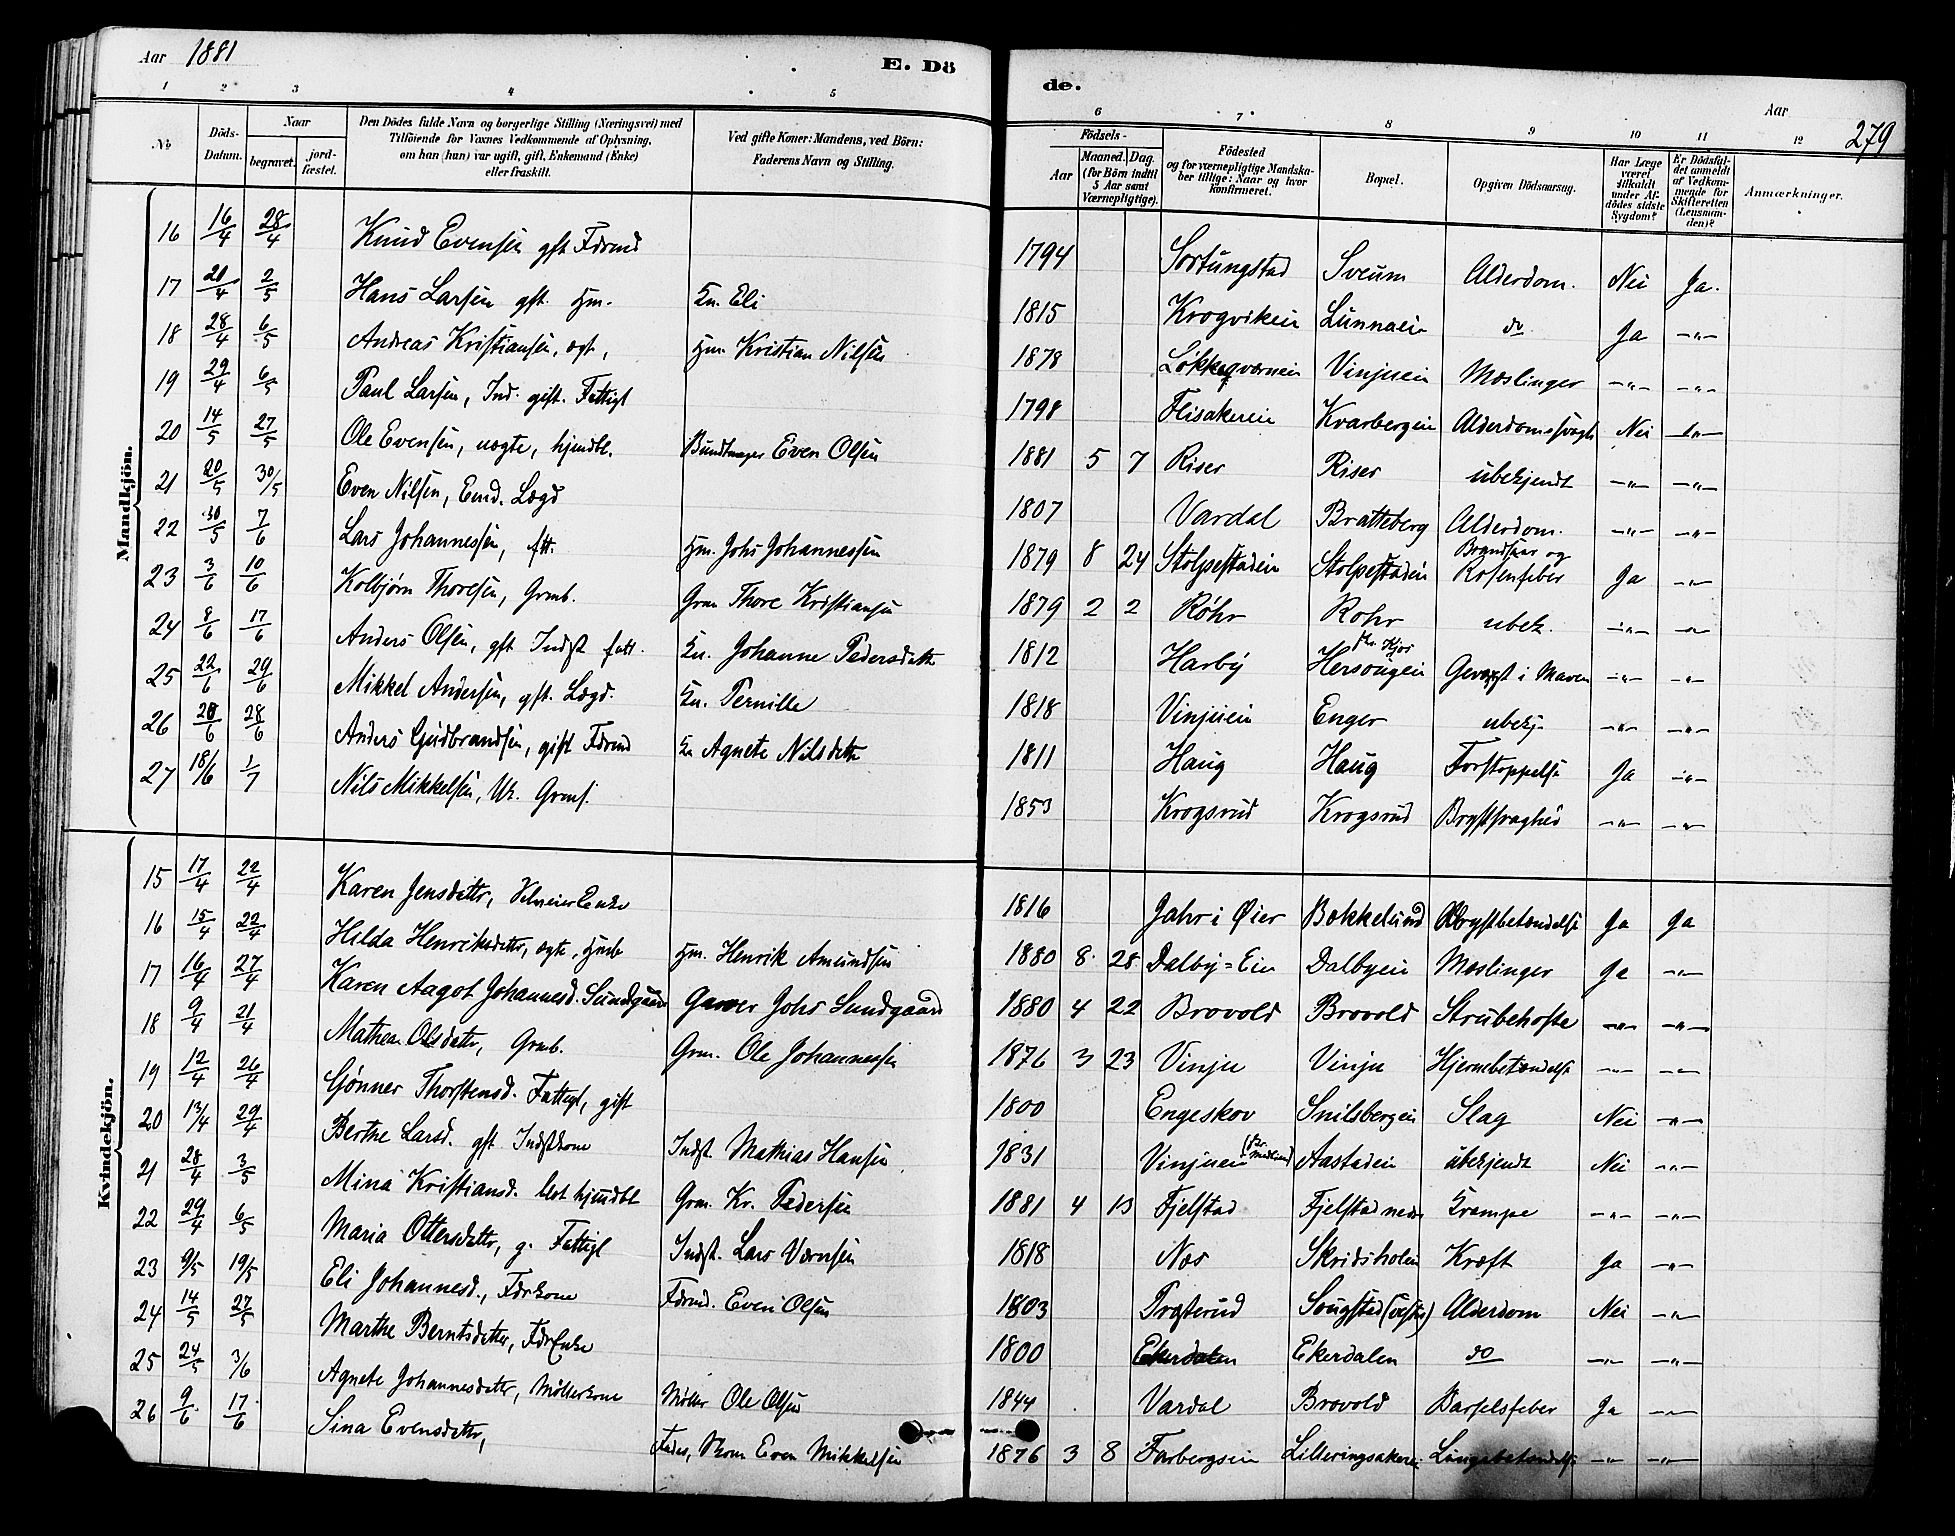 Aar 1881
E. Dö
de.
Aar
279
1 2 3 4 5 6 7 8 9 10 11 12
No
Döds-Datum.
Naar
begravet.
jord-fæstet.
Den Dödes fulde Navn og borgerlige Stilling (Næringsvei) med
Tilföiende for Voxnes Vedkommende af Oplysning,
om han (hun) var ugift, gift, Enkemand (Enke)
eller fraskilt.
Ved gifte Koner: Mandens, ved Börn:
Faderens Navn og Stilling.
Födsels-
Aar
Maaned. Dag.
(for Börn indtil
5 Aar samt
Værnepligtige).
Födested
og for værnepligtige Mandska-
ber tillige: Naar og hvor
konfirmeret.
Bopæl.
Opgiven Dödsaarsag.
Har Læge
været
tilkaldt
under Af-
dödes sidste
Sygdom?
Er Dödsfal-
det anmeldt
af Vedkom-
mende for
Skifteretten
(Lensman-
den)?
Anmærkninger.
Mandkjön.
16 16/4 28/4 Knud Evensen gft Fdrmd 1794 Sortungstad Sveum Alderdom. Nei Ja.
17 21/4 2/5 Hans Larsen gft. Hm. Kn. Eli 1815 Krogvikein Lunnaein do Ja -"-
18 28/4 6/5 Andreas Kristiansen, ægt, Hm. Kristian Nilsen 1878 Løkkeqværnein Vinjuein Mæslinger -"- -"-
19 29/4 6/5 Paul Larsen, Ind. gift. Fattigl 1798 Flisakerein Kvarbergein Alderdomssvagh Nei -"-
20 14/5 27/5 Ole Evensen, uægte, hjemdbt. Bundtmager Even Olsen 1881 5 7 Riser Riser ubekjendt -"- -"-
21 20/5 30/5 Even Nilsen, Emd. Lægd 1807 Vardal Bratteberg Alderdom. -"- -"-
22 30/5 7/6 Lars Johannessen, ftt. Hm. Johs Johannessen 1879 8 24 Stolpestadein Stolpestadein Brandsaar og Rosenfeber Ja -"-
23 3/6 10/6 Kolbjørn Thoresen, Grmb. Grm Thore Kristiansen 1879 2 2 Røhr Rohr ubek. -"- -"-
24 8/6 17/6 Anders Olsen, gft Indst fatt. Kn. Johanne Pedersdatt 1812 Harby Hersougein Gevæxst i Maven -"- -"-
25 22/6 29/6 Mikkel Andersen, gft. Lægd. Kn. Pernille 1818 Vinjuein Enger ubekj. -"- -"-
26 20/6 28/6 Anders Gudbrandsen, gift Fdrmd Kn Agnete Nilsdatt 1811 Haug Haug Forstoppelse Ja -"-
27 18/6 1/7 Nils Mikkelsen, Uk. Grms. 1853 Krogsrud Krogsrud Brystsvaghed -"- -"-
Kvindekjön.
15 17/4 22/4 Karen Jensdatter, 1816 Jahr i Øier Bækkelund Brystbetændelse Ja Ja
16 15/4 22/4 Hilda Henriksdatter, ægte, Hmb Hm. Henrik Amundsen 1880 8 28 Dalby-Ein Dalbyein Mæslinger Ja -"-
17 16/4 27/4 Karen Aagot Johannesd. Sundgaard Garver Johs Sundgaard 1880 4 22 Brovold Brovold Strubehoste -"- -"-
18 9/4 21/4 Mathea Olsdatter, Grmb. Grm. Ole Johannessen 1876 3 23 Vinju Vinju Hjernebetændelse -"- -"-
19 12/4 26/4 Gønner Thorstensd. Fattigl, gift 1800 Engeskov Snilsbergein Slag Nei -"-
20 13/4 29/4 Berthe Larsd. gft Indstkone Indst. Mathias Hansen 1831 Vinjuein Aastadein ubekjendt Nei -"-
21 28/4 3/5 Mina Kristiansd. hjemdbt Grm. Kr. Pedersen 1881 4 13 Fjelstad Fjelstad nedre Krampe -"- -"-
22 29/4 6/5 Maria Ottersdatter, g. Fattigl Indst. Lars Værnsen 1818 Næs Skridsholen Kræft Ja -"-
23 9/5 19/5 Eli Johannesd., Fdrkone Fdrmd. Even Olsen 1803 Præsterud Sougstad (vestre) Alderdom Nei -"-
24 14/5 27/5 Marthe Berntsdatter, FdrEnke 1800 Ekerdalen Ekerdalen do -"- -"-
25 24/5 3/6 Agnete Johannesdatter, Møllerkone Møller Ole Olsen 1844 Vardal Brovold Barselsfeber Ja -"-
26 9/6 17/6 Sina Evensdatter, Even Mikkelsen 1876 3 8 Farbergsein Lilleringsakerein Lungebetændelse -"- -"-